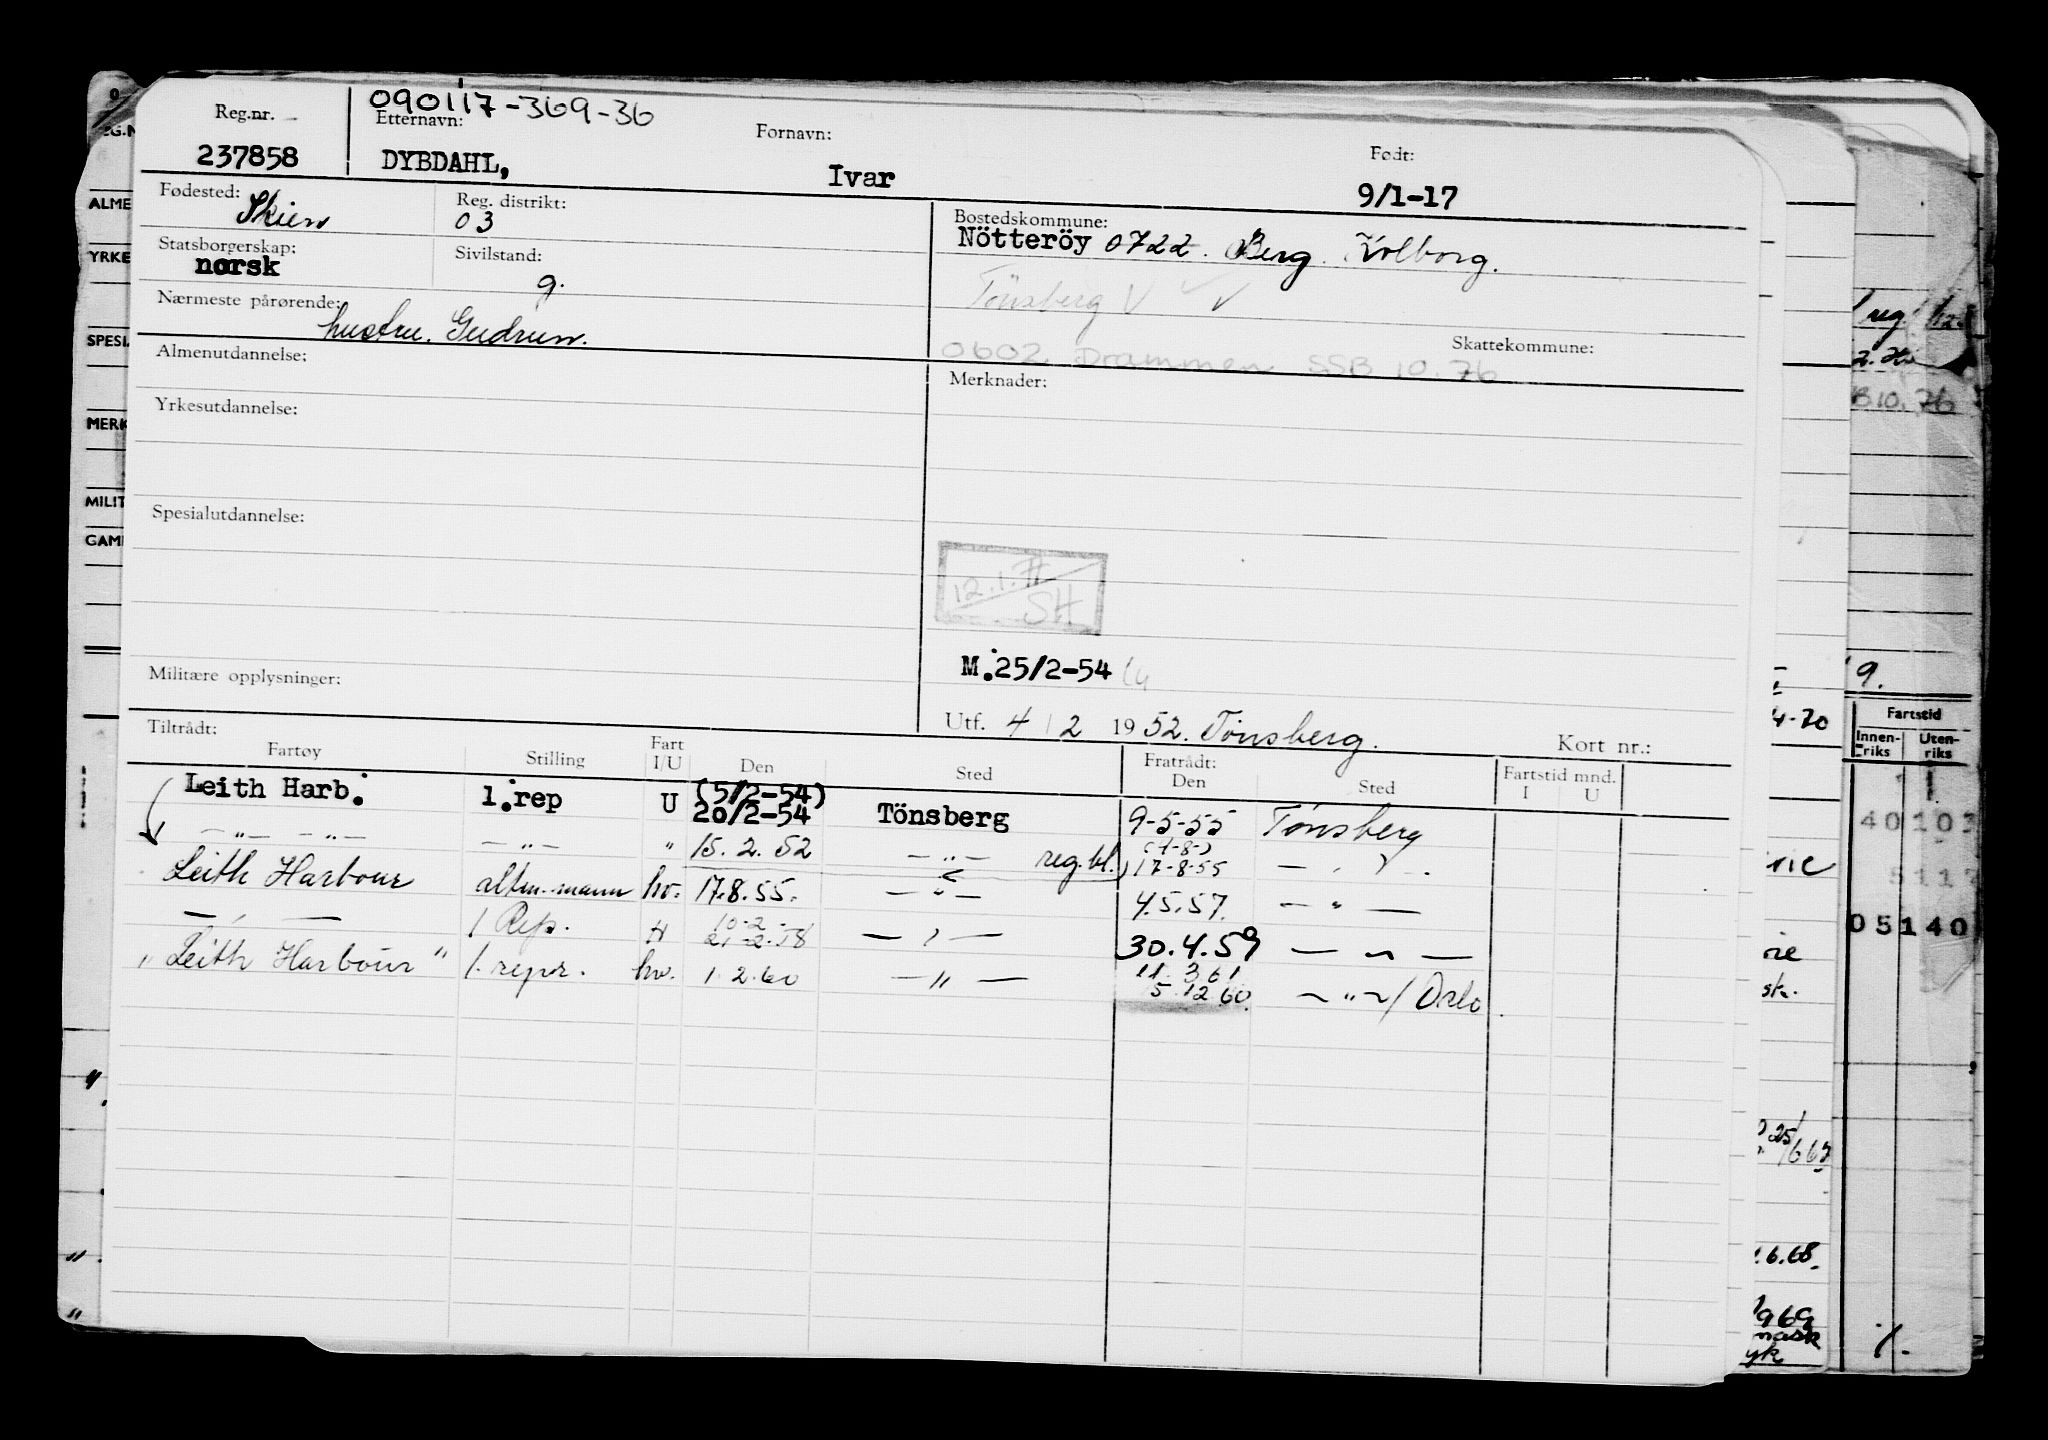 090117-369-36
Reg.nr. Etternavn: Fornavn: Født:
237858 DYBDAHL, Ivar 9/1-17
Fødested: Skien Reg. distrikt: 03 Bostedskommune:
Nötteröy 0722. Berg. Kolborg.
Statsborgerskap: norsk Sivilstand: g.
Tönsberg V V
Nærmeste pårørende: hustru. Gudrun.
Skattekommune:
0602 Drammen SSB 10.76
Almenutdannelse: Merknader:
Yrkesutdannelse:
Spesialutdannelse:
12.1.77
SH
M.25/2-54
Militære opplysninger:
Utf. 4/2 1952. Tönsberg. Kort nr.:
Tiltrådt: Fratrådt:
Fartøy Stilling Fart I/U Den Sted Den Sted Fartstid mnd. I U
Leith Harb. 1.rep U (5/2-54) 20/2-54 Tönsberg 9-5-55 Tönsberg
— " — — " — — " — " 15.2.52 — " — reg.bl. (1-8-) 17-8-55 — " —
Leith Harbour altm.mann hv. 17.8.55. — " — 4.5.57. — " —
— " — 1 Rep. H 10-2- 21-2-58 — " — 30.4.59 — " —
"Leith Harbour" 1. repr. hv. 1.2.60 — " — 11.3.61 5.12.60. — " — / Oslo
REG.N
ALME
YRKE
SPESI
MERK
MILIT
GAM
B10.76
9.
4-70
Fartstid
Innen-riks Uten-riks
40103
5117
05140
sk.
25/6 67
.6.68.
1969
mask